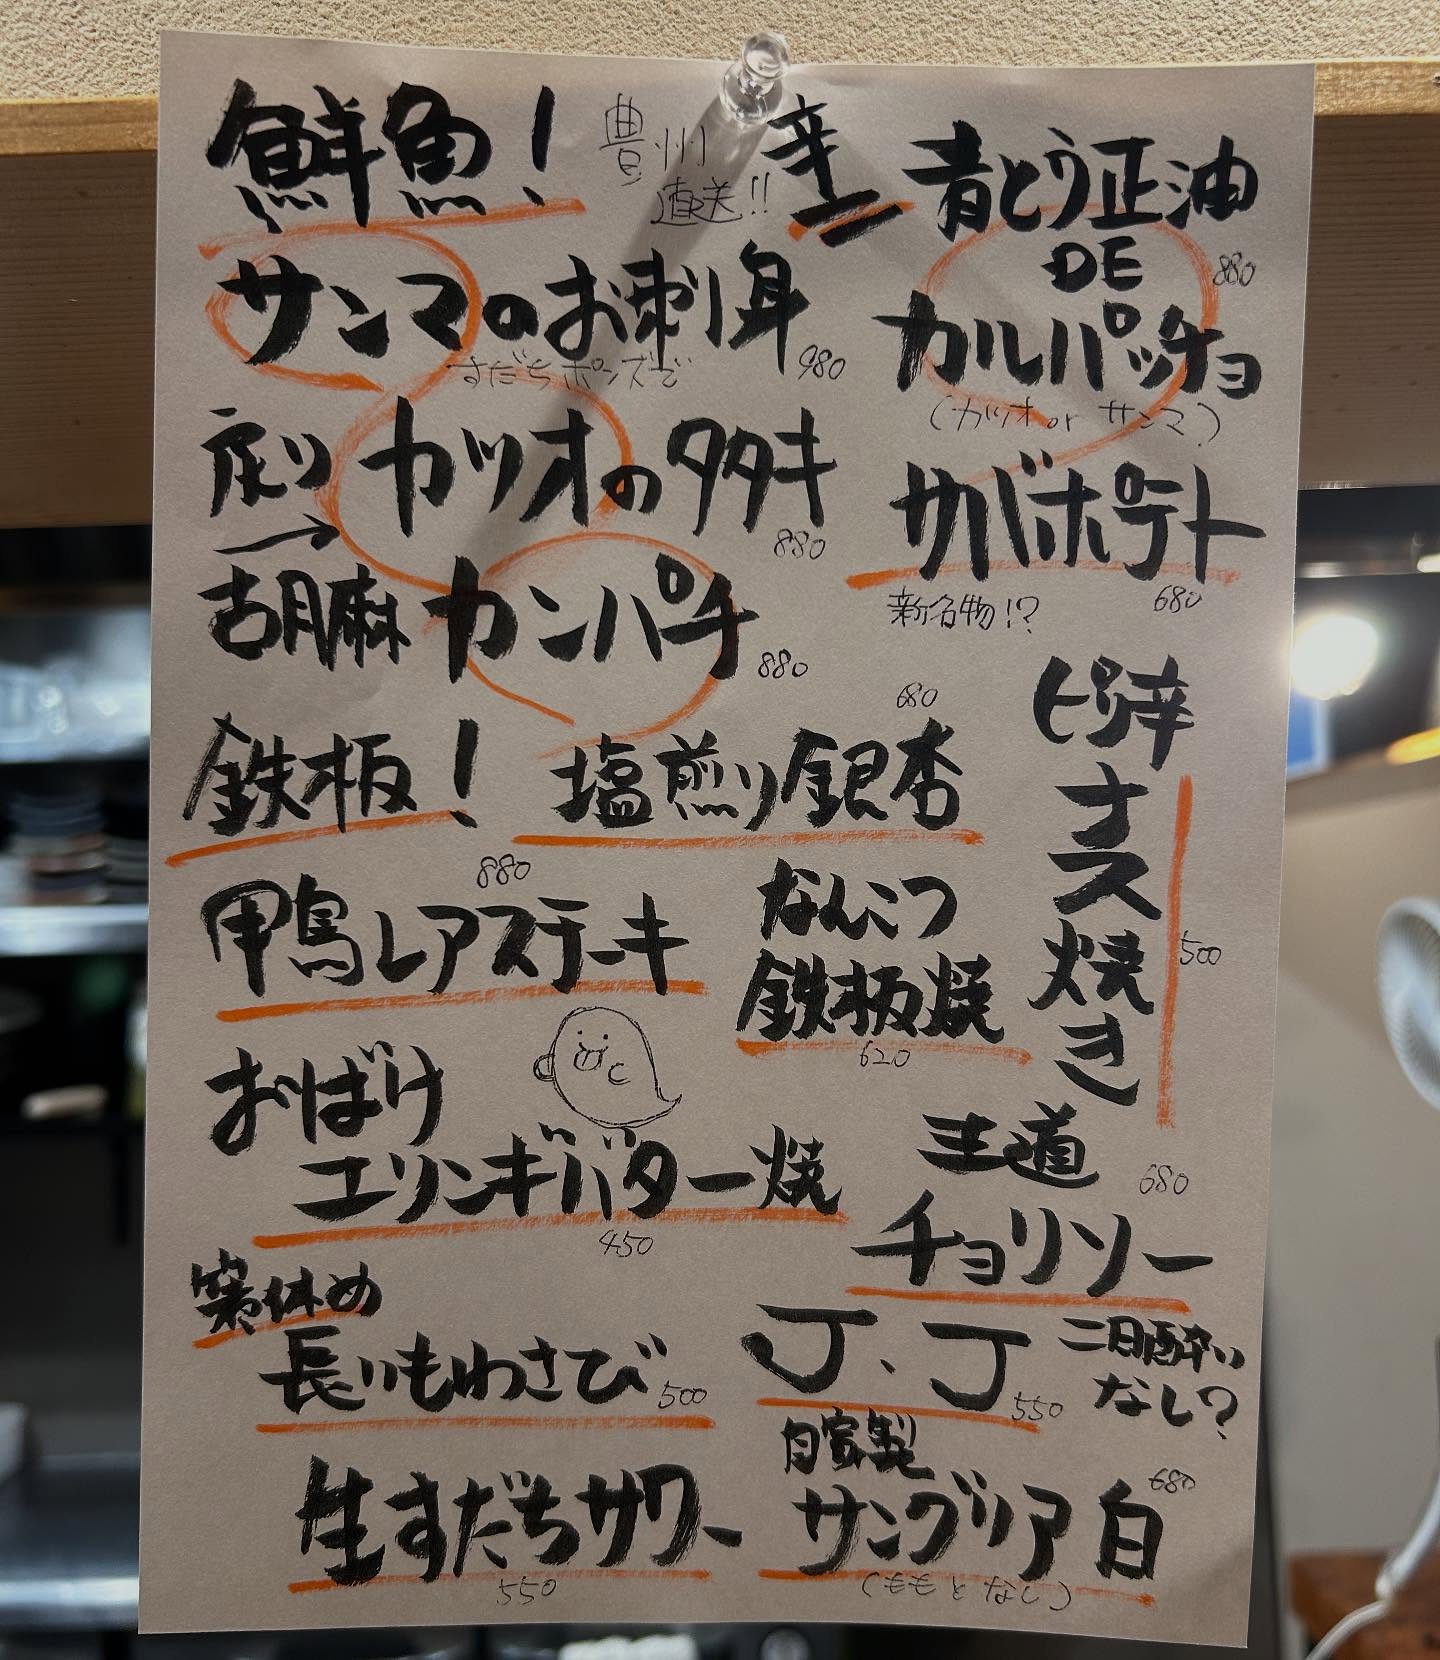 鮮魚!
豊州
直送!!
サンマのお刺身
すだちポンズで
980
戻り
→
カツオのタタキ
880
胡麻カンパチ
880
辛
青とう正油
DE
カルパッチョ
880
(カツオ or サンマ)
サバポテト
新名物!?
680
鉄板!
塩煎り銀杏
680
ピリ辛
ナス焼き
500
880
甲鳥レアステーキ
なんこつ
鉄板焼
620
おばけ
エリンギバター焼
450
王道
チョリソー
680
箸休め
長いもわさび
500
J、J
550
二日酔い
なし?
生すだちサワー
550
自家製
サングリア 白
680
(ももとなし)